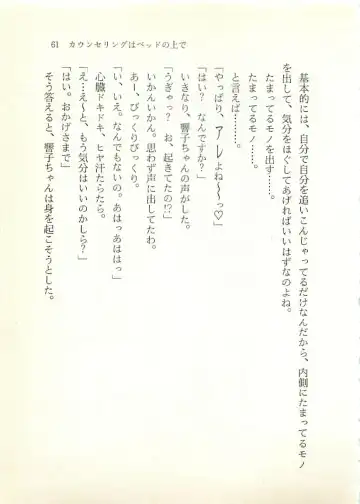 61　カウンセリングはベッドの上で
基本的には、自分で自分を追いこんじゃってるだけなんだから、内側にたまってるモノ
を出して、気分をほぐしてあげればいいはずなのよね。
たまってるモノを出す……。
たまってるモノ……。
と言えば………。
「やっぱり、アレよね〜〜♡」
「はい？　なんですか？」
いきなり、響子ちゃんの声がした。
「うぎゃっ？　お、起きてたの!?」
いかんいかん。思わず声に出してたわ。
あー、びっくりびっくり。
「い、いえ。なんでもないの。あはっあははっ」
心臓ドキドキ、ヒヤ汗たらたら。
「え…え〜と、もう気分はいいのかしら？」
「はい。おかげさまで」
そう答えると、響子ちゃんは身を起こそうとした。